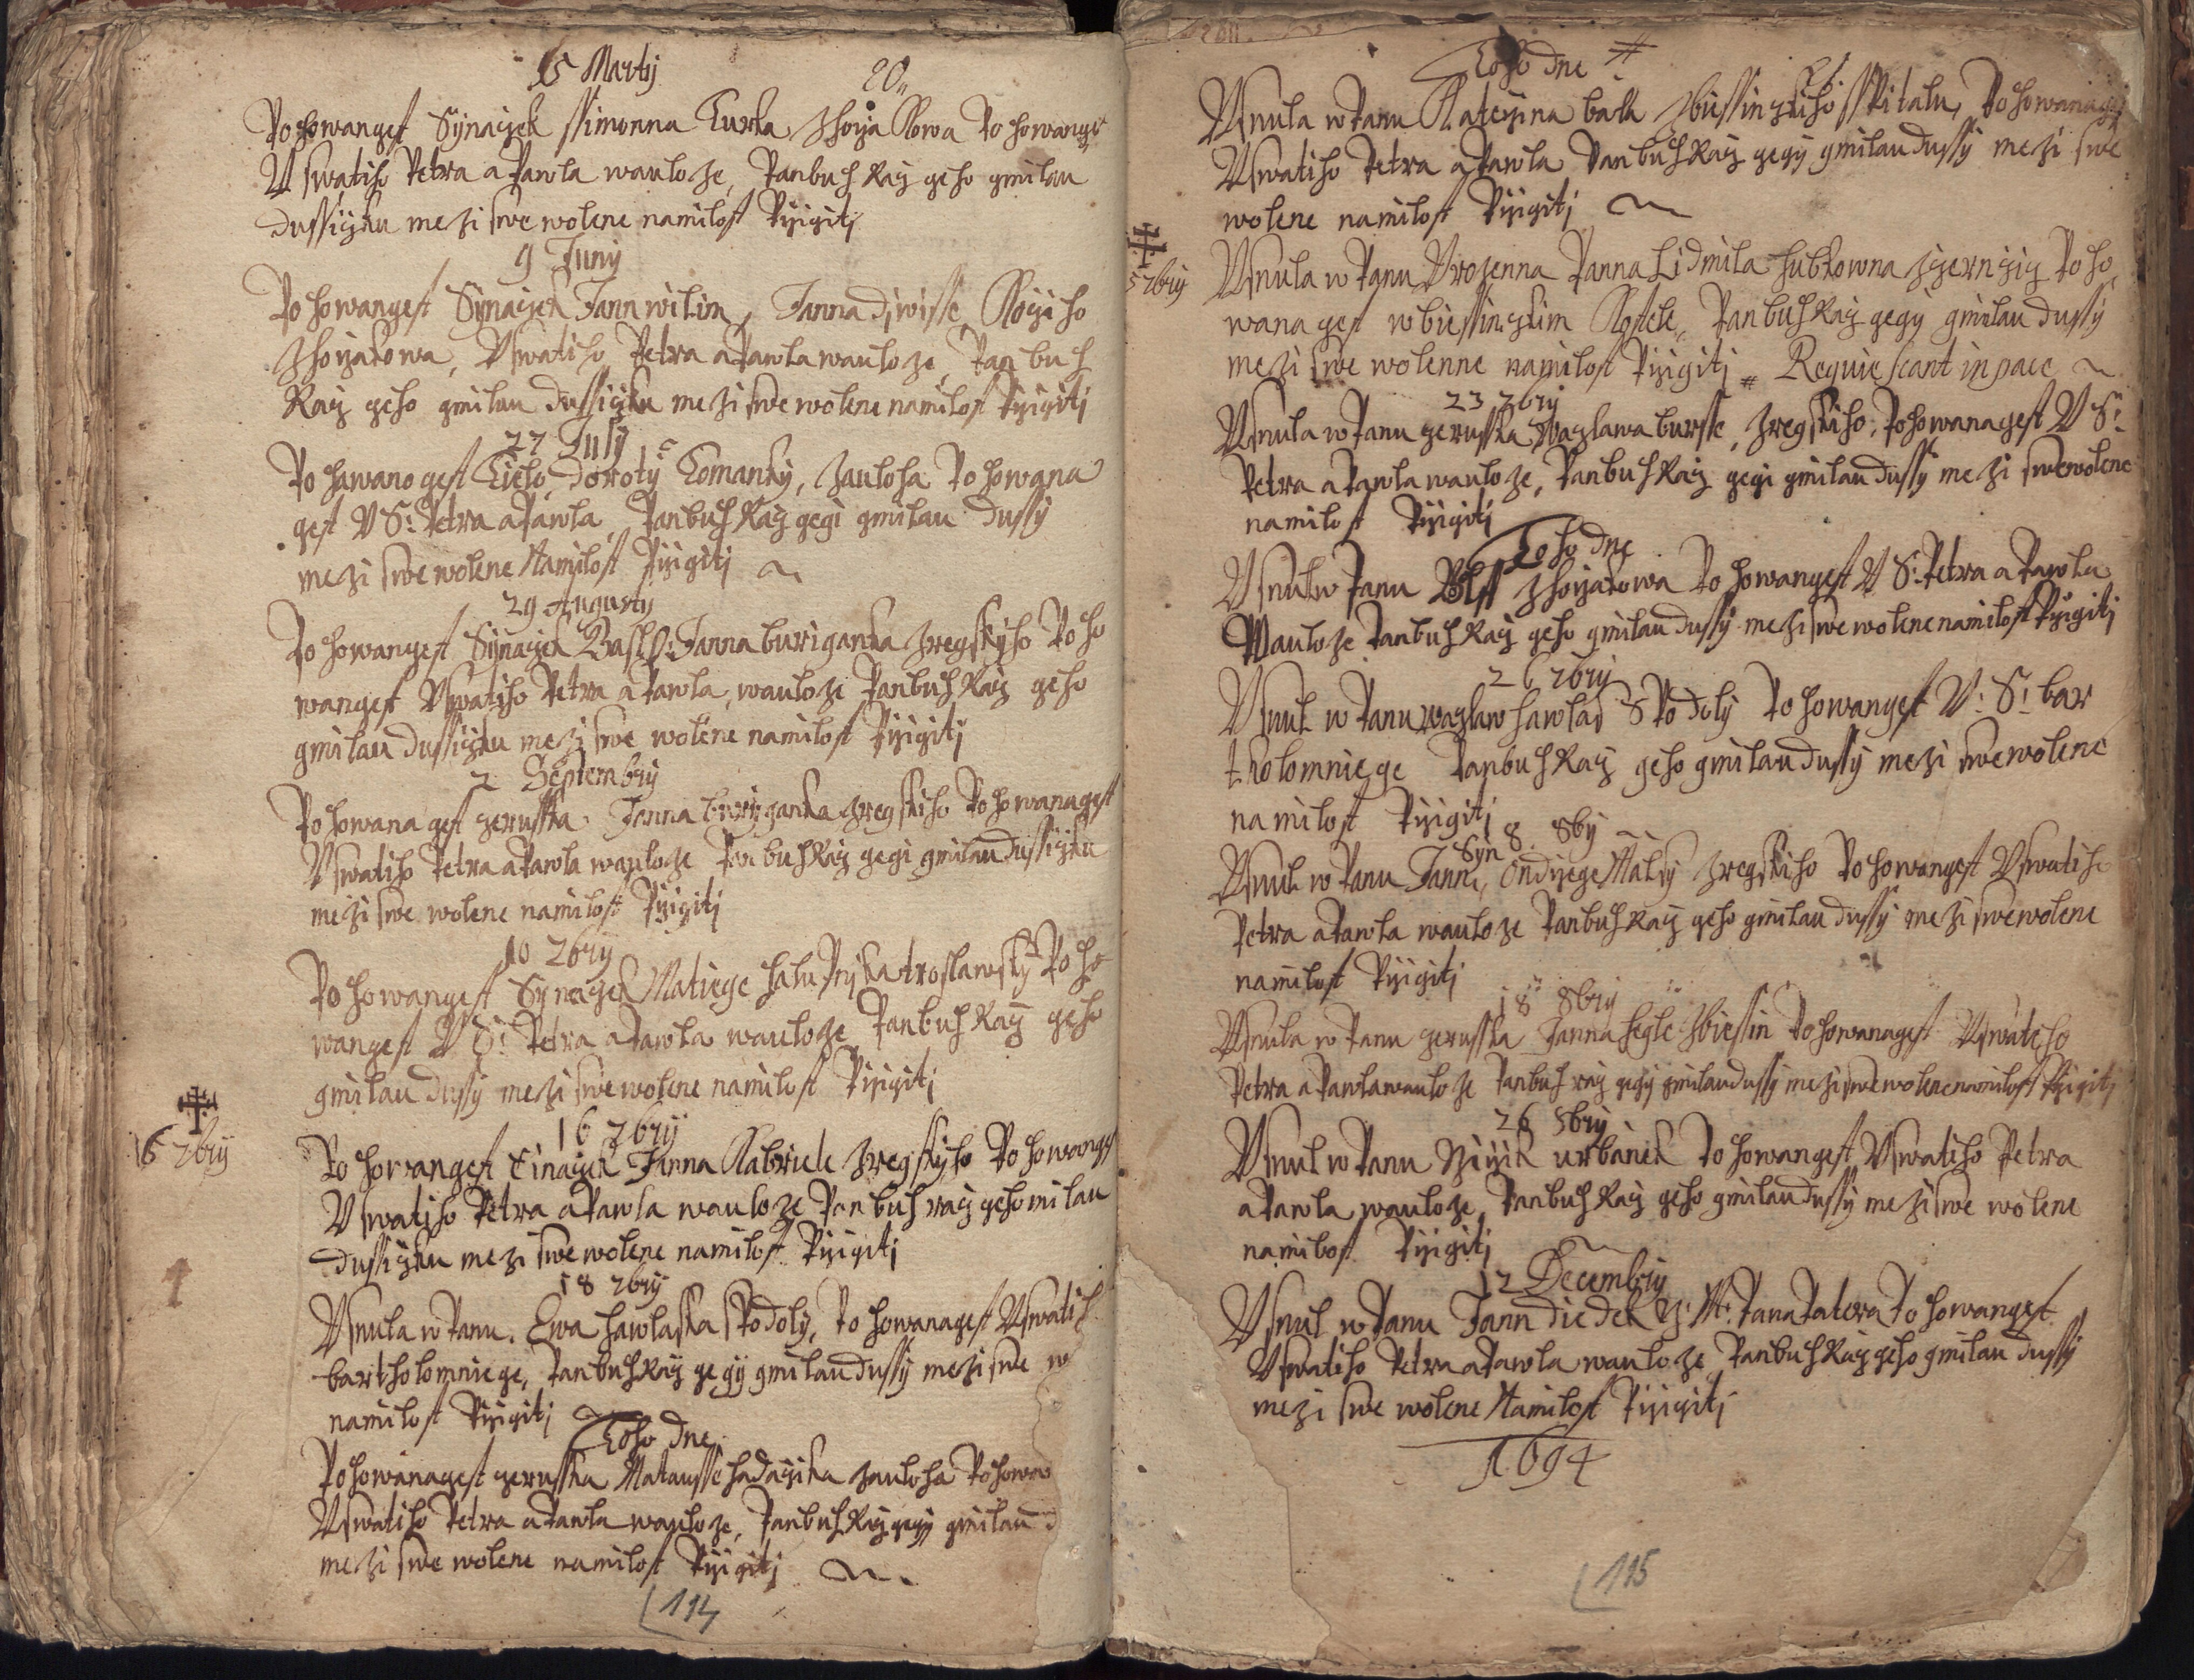 15 Martij
20
Pohowangest Synaczek Ssimonna Turka Pohowangest
U swatiho Petra a Pawla wauloze, Panbuh Racz geho gmilau
dussiczku mezi swe wolene namilost Przigiti
9 Junij
Pohowangest Synaczek Jann wilim, Janna diwisse
U swatiho Petra a Pawla wauloze, Pan buh
Racz geho gmilau dussiczku mezi swe wolene namilost Przigiti
27 Julij
Pohowano gest Tielo doroty Tomanky, zauloha Pohowana
gest U S: Petra a Pawla Panbuh Racz gegi gmilau dussy
mezi swe wolene Namilost Przigiti
29 Augusty
Pohowangest Synaczek Janna buriganka zregskyho Poho
wangest Uswatiho Petra a Pawla, waulozi Panbuh Racz geho
gmilau dussiczku mezi swe wolene namilost Przigiti
2 Septembrij
Pohowana gest czerusska Janna buryganka zregskiho Pohowanagest
Uswatiho Petra a Pawla wauloze Panbuh Racz gegi gmilau dussiczku
mezi swe wolene namilost Przigiti
10 7brij
Pohowangest Synaczek Matiege Poho
wangest U S: Petra a Pawla wauloze Panbuh Racz geho
gmilau dussy mezi swe wolene namilost Przigiti
16 7brij
16 7brij
Pohowangest Sinaczek Janna Kabriele zregskyho Pohowangest
Uswatiho Petra a Pawla wauloze Panbuh racz geho milau
dussiczku mezi swe wolene namilost Przigiti
18 7brij
Usnula w Panu. Ewa hawlaska sPodoly, Pohowanagest Uswatih
bartholomniege, Panbuh Racz gegij gmilau dussy mezi swe w
namilost Przigiti
Toho dne
Pohowanagest czerusska Matausse hadaczika zauloha
Uswatiho Petra a Pawla wauloze, Panbuh Racz gegij gmilau d
mezi swe wolene namilost Przigiti
114
Toho dne
Usnula w Panu Katerzina bała zbiessinzkiho sspitalu, Pohowanagest
Uswatiho Petra a Pawla Panbuh Racz gegij gmilau dussy mezi swe
wolene namilost Przigiti
5 7brij
Usnula w Panu Urozenna Panna Lidmila Poho
wana gest wbiessinzkim Kostele, Panbuh Racz gegij gmilau dussy
mezi swe wolenne namilost Przigiti Requiescant in pace
23 7brij
Usnula w Panu czerusska Waczlawa bursse, zregskiho, Pohowanagest U S:
Petra a Pawla wauloze, Panbuh Racz gegi gmilau dussy mezi swe wolene
namilost Przigiti
Toho dne
Usnul w Panu Pohowangest U S: Petra a Pawla
Wauloze Panbuh Racz geho gmilau dussy mezi swe wolene namilost Przigiti
26 7brij
Usnul w Panu waczlaw hawlas SPodoly Pohowangest U: S: bar
tholomniege Panbuh Racz geho gmilau dussy mezi swe wolene
namilost Przigiti
8 8bij
Syn
Usnul w Panu Jann, Ondrzege zregskiho Pohowangest Uswatiho
Petra a Pawla wauloze Panbuh Racz geho gmilau dussy mezi swe wolene
namilost Przigiti
18 8brij
Usnula w Panu czerusska Janna hegle zbiessin Pohowanagest Uswateho
Petra a Pawla wauloze Panbuh racz gegij gmilau dussy mezi swe wolene namilost Przigiti
26 8brij
Usnul w Panu urbanek Pohowangest Uswatiho Petra
a Pawla wauloze, Panbuh Racz geho gmilau dussy mezi swe wolene
namilost Przigiti
12 Decembrij
Usnul w Panu Jann diedek z: M: Pana Patera Pohowangest
Uswatiho Petra a Pawla wauloze Panbuh Racz geho gmilau dussy
mezi swe wolene Namilost Przigiti
1694
115